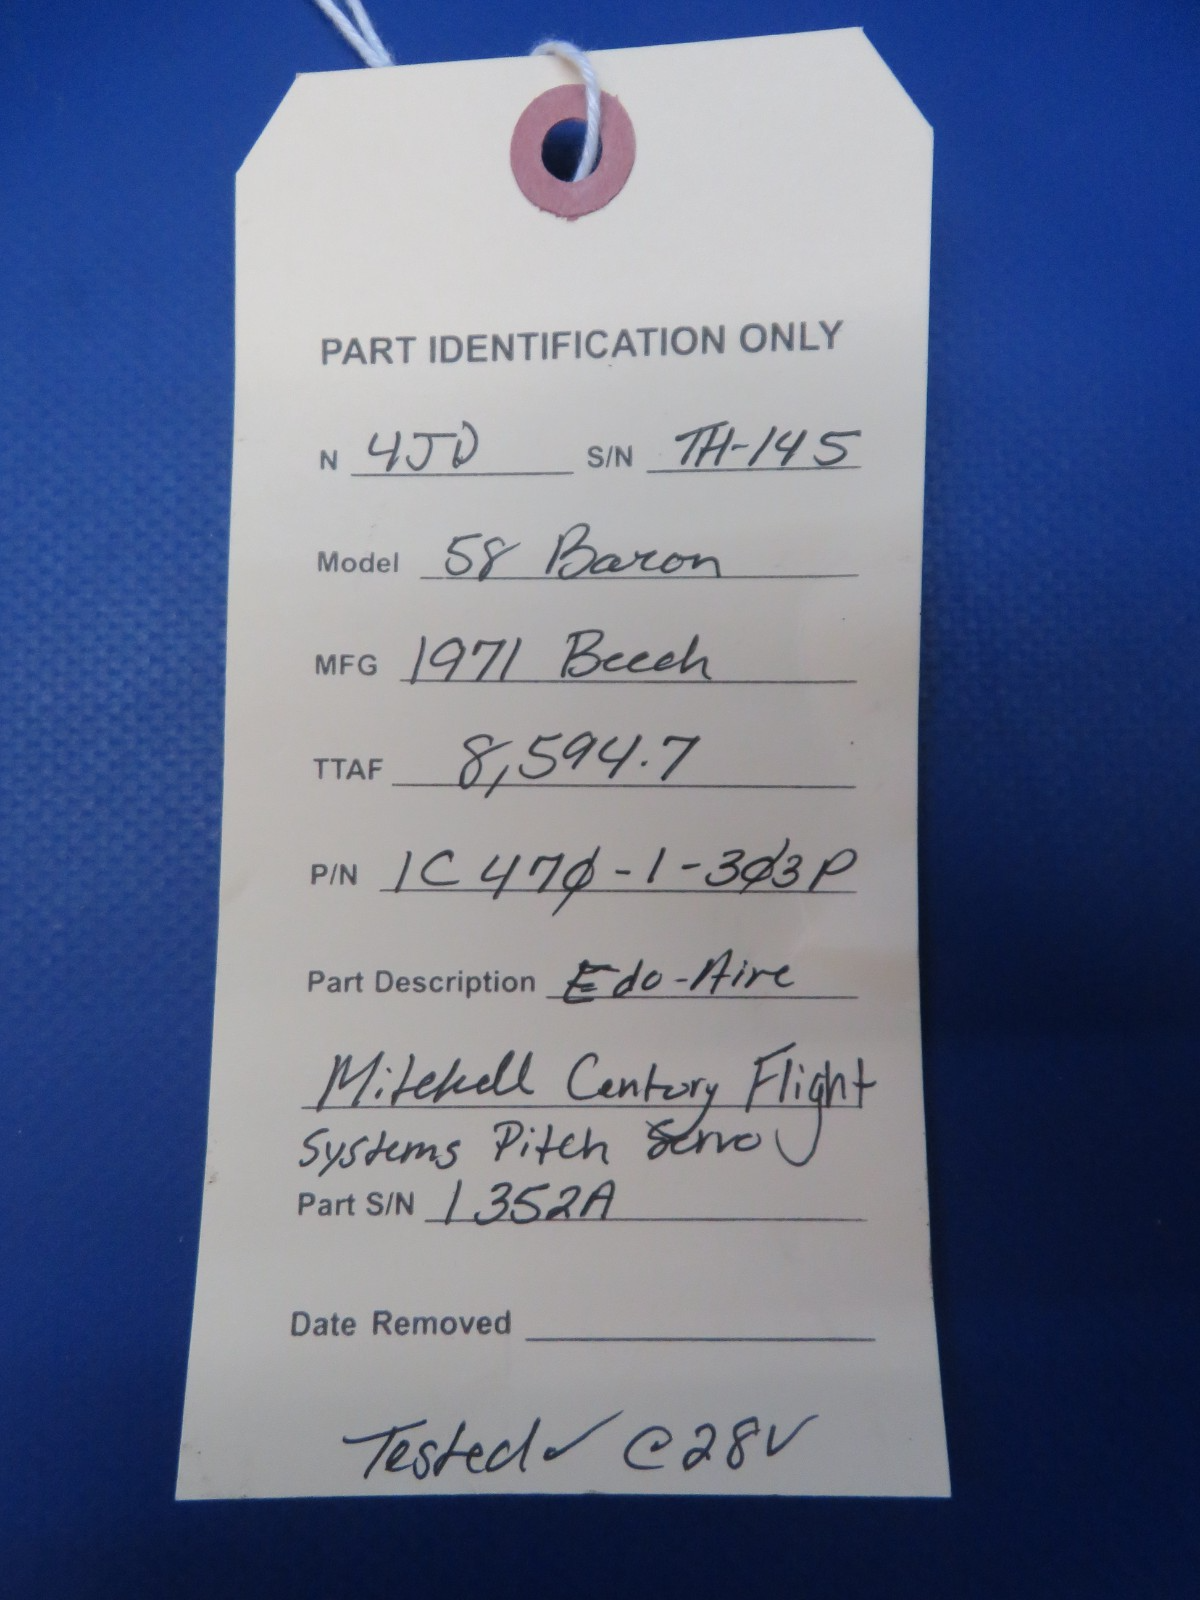 PART IDENTIFICATION ONLY
N 4JD S/N TH-145
Model 58 Baron
MFG 1971 Beech
TTAF 8,594.7
P/N 1C470-1-303P
Part Description Edo-Aire
Mitchell Century Flight
Systems Pitch Servo
Part S/N 1352A
Date Removed
Tested ✓ @ 28V